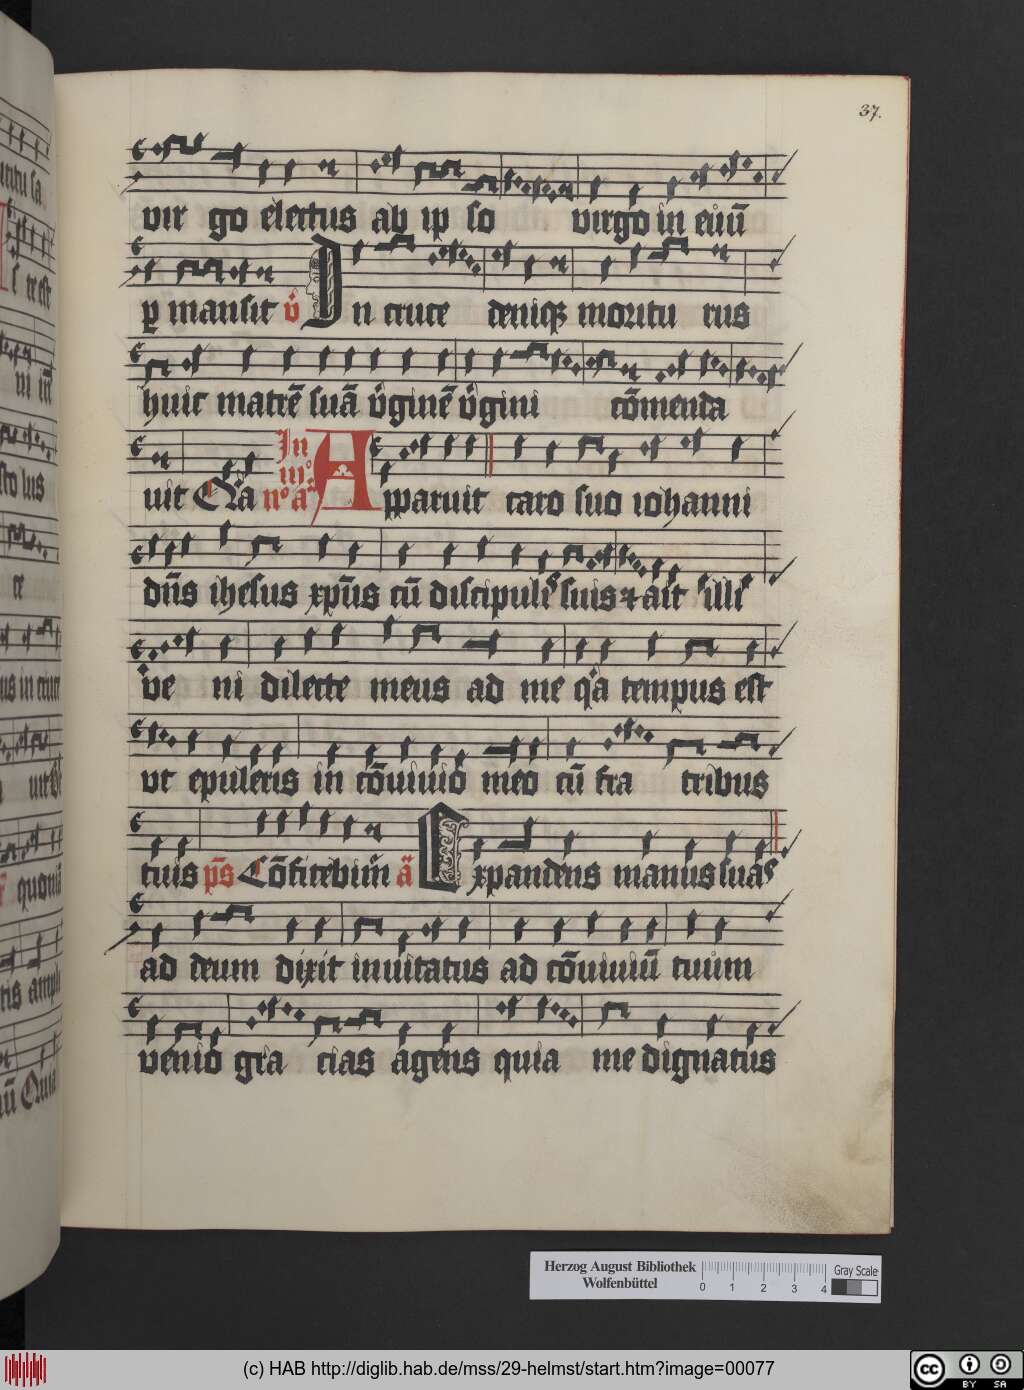 37.
vir go electus ab ip so virgo in eiuū
ꝑ mansit v̊ In cruce deniqꝫ moritu rus
huic matrē suā v̊ginē v̊gini cōmenda
uit Q̊a In iij° n° a᷑ Apparuit caro suo iohanni
dn̄s ihesus xp̄us cū discipulis suis ⁊ ait illi
ve ni dilecte meus ad me q̊a tempus est
vt epuleris in cōuiuio meo cū fra tribus
tuis p̄s Cōfitebim̄ ā Expandens manus suas
ad deum dixit inuitatus ad cōuiuiū tuum
venio gra cias agens quia me dignatus
Herzog August Bibliothek
Wolfenbüttel
0 1 2 3 4
Gray Scale
(c) HAB http://diglib.hab.de/mss/29-helmst/start.htm?image=00077
cc BY SA